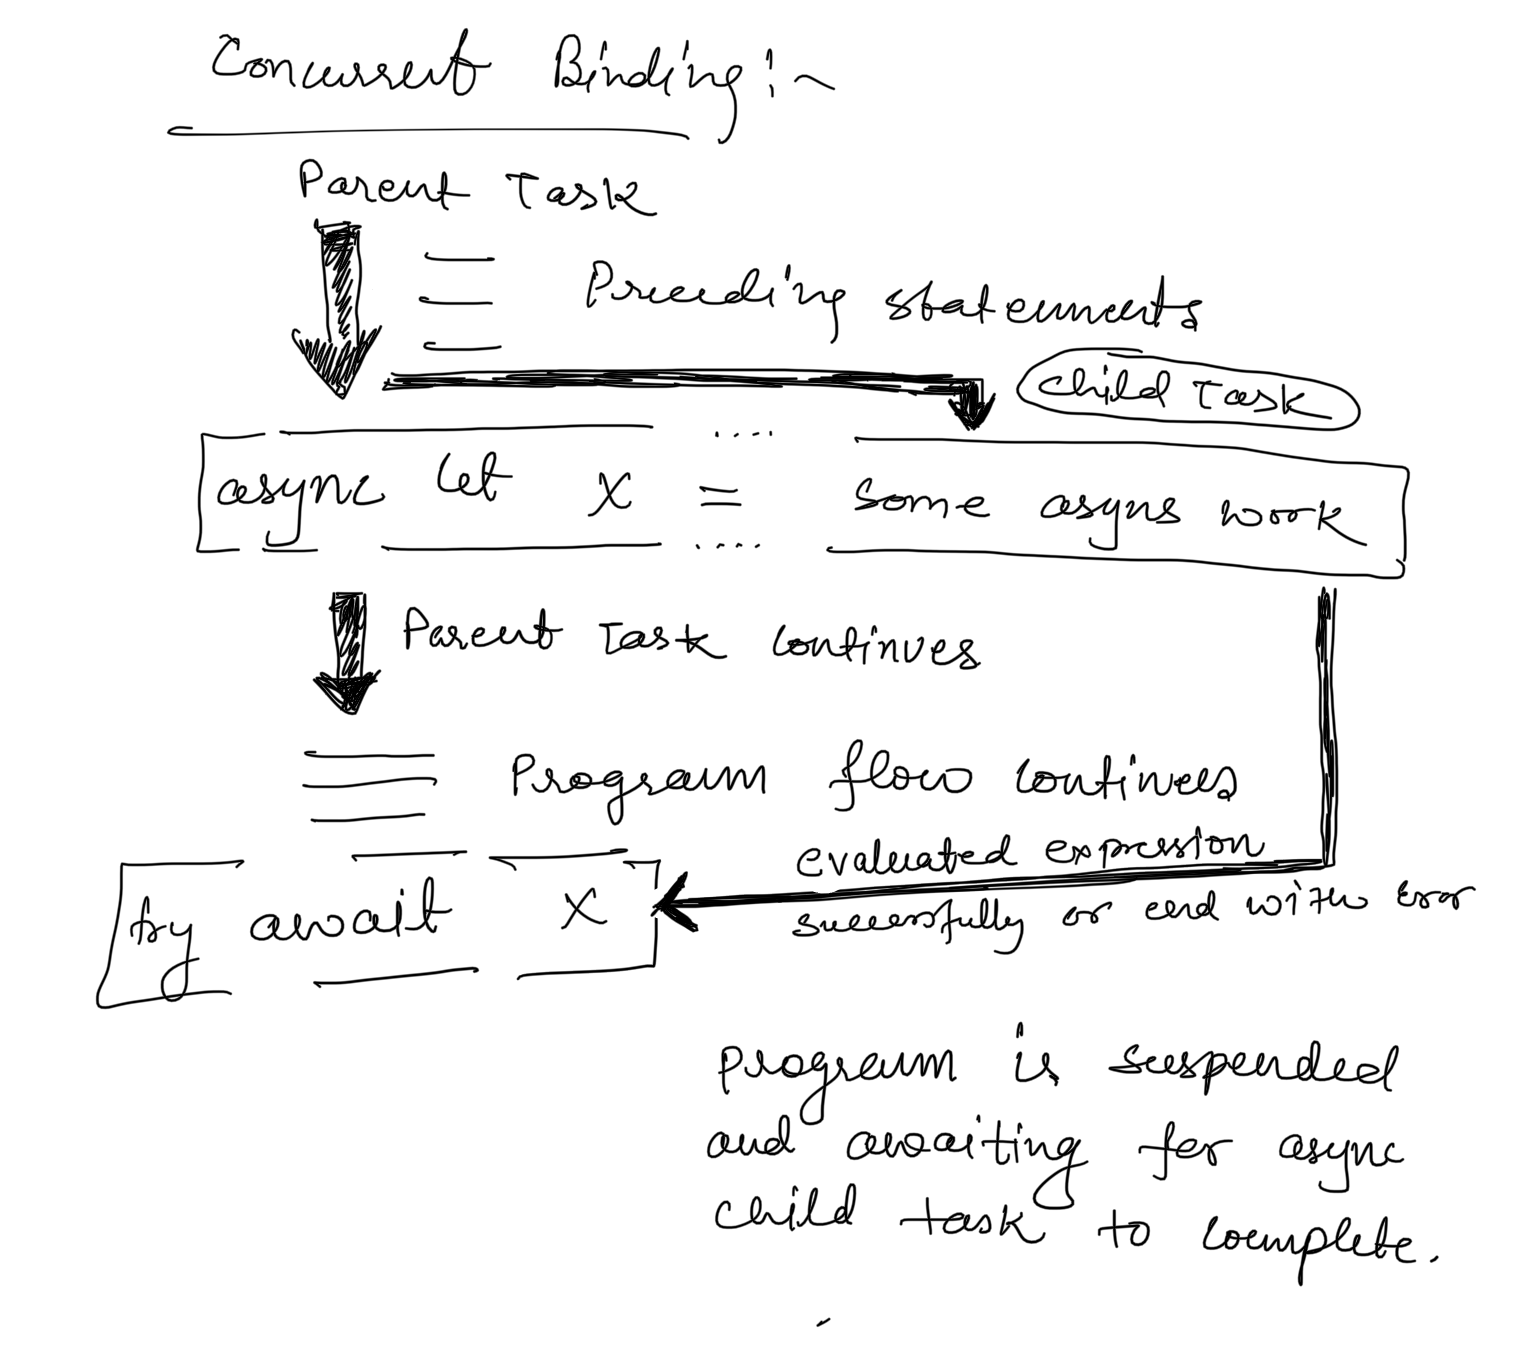 Concurrent Binding:~
Parent Task
Preceding statements
Child Task
async let x = some asyns work
Parent Task continues
Program flow continues
evaluated expression
successfully or end with error
try await x
Program is suspended
and awaiting for async
child task to complete.